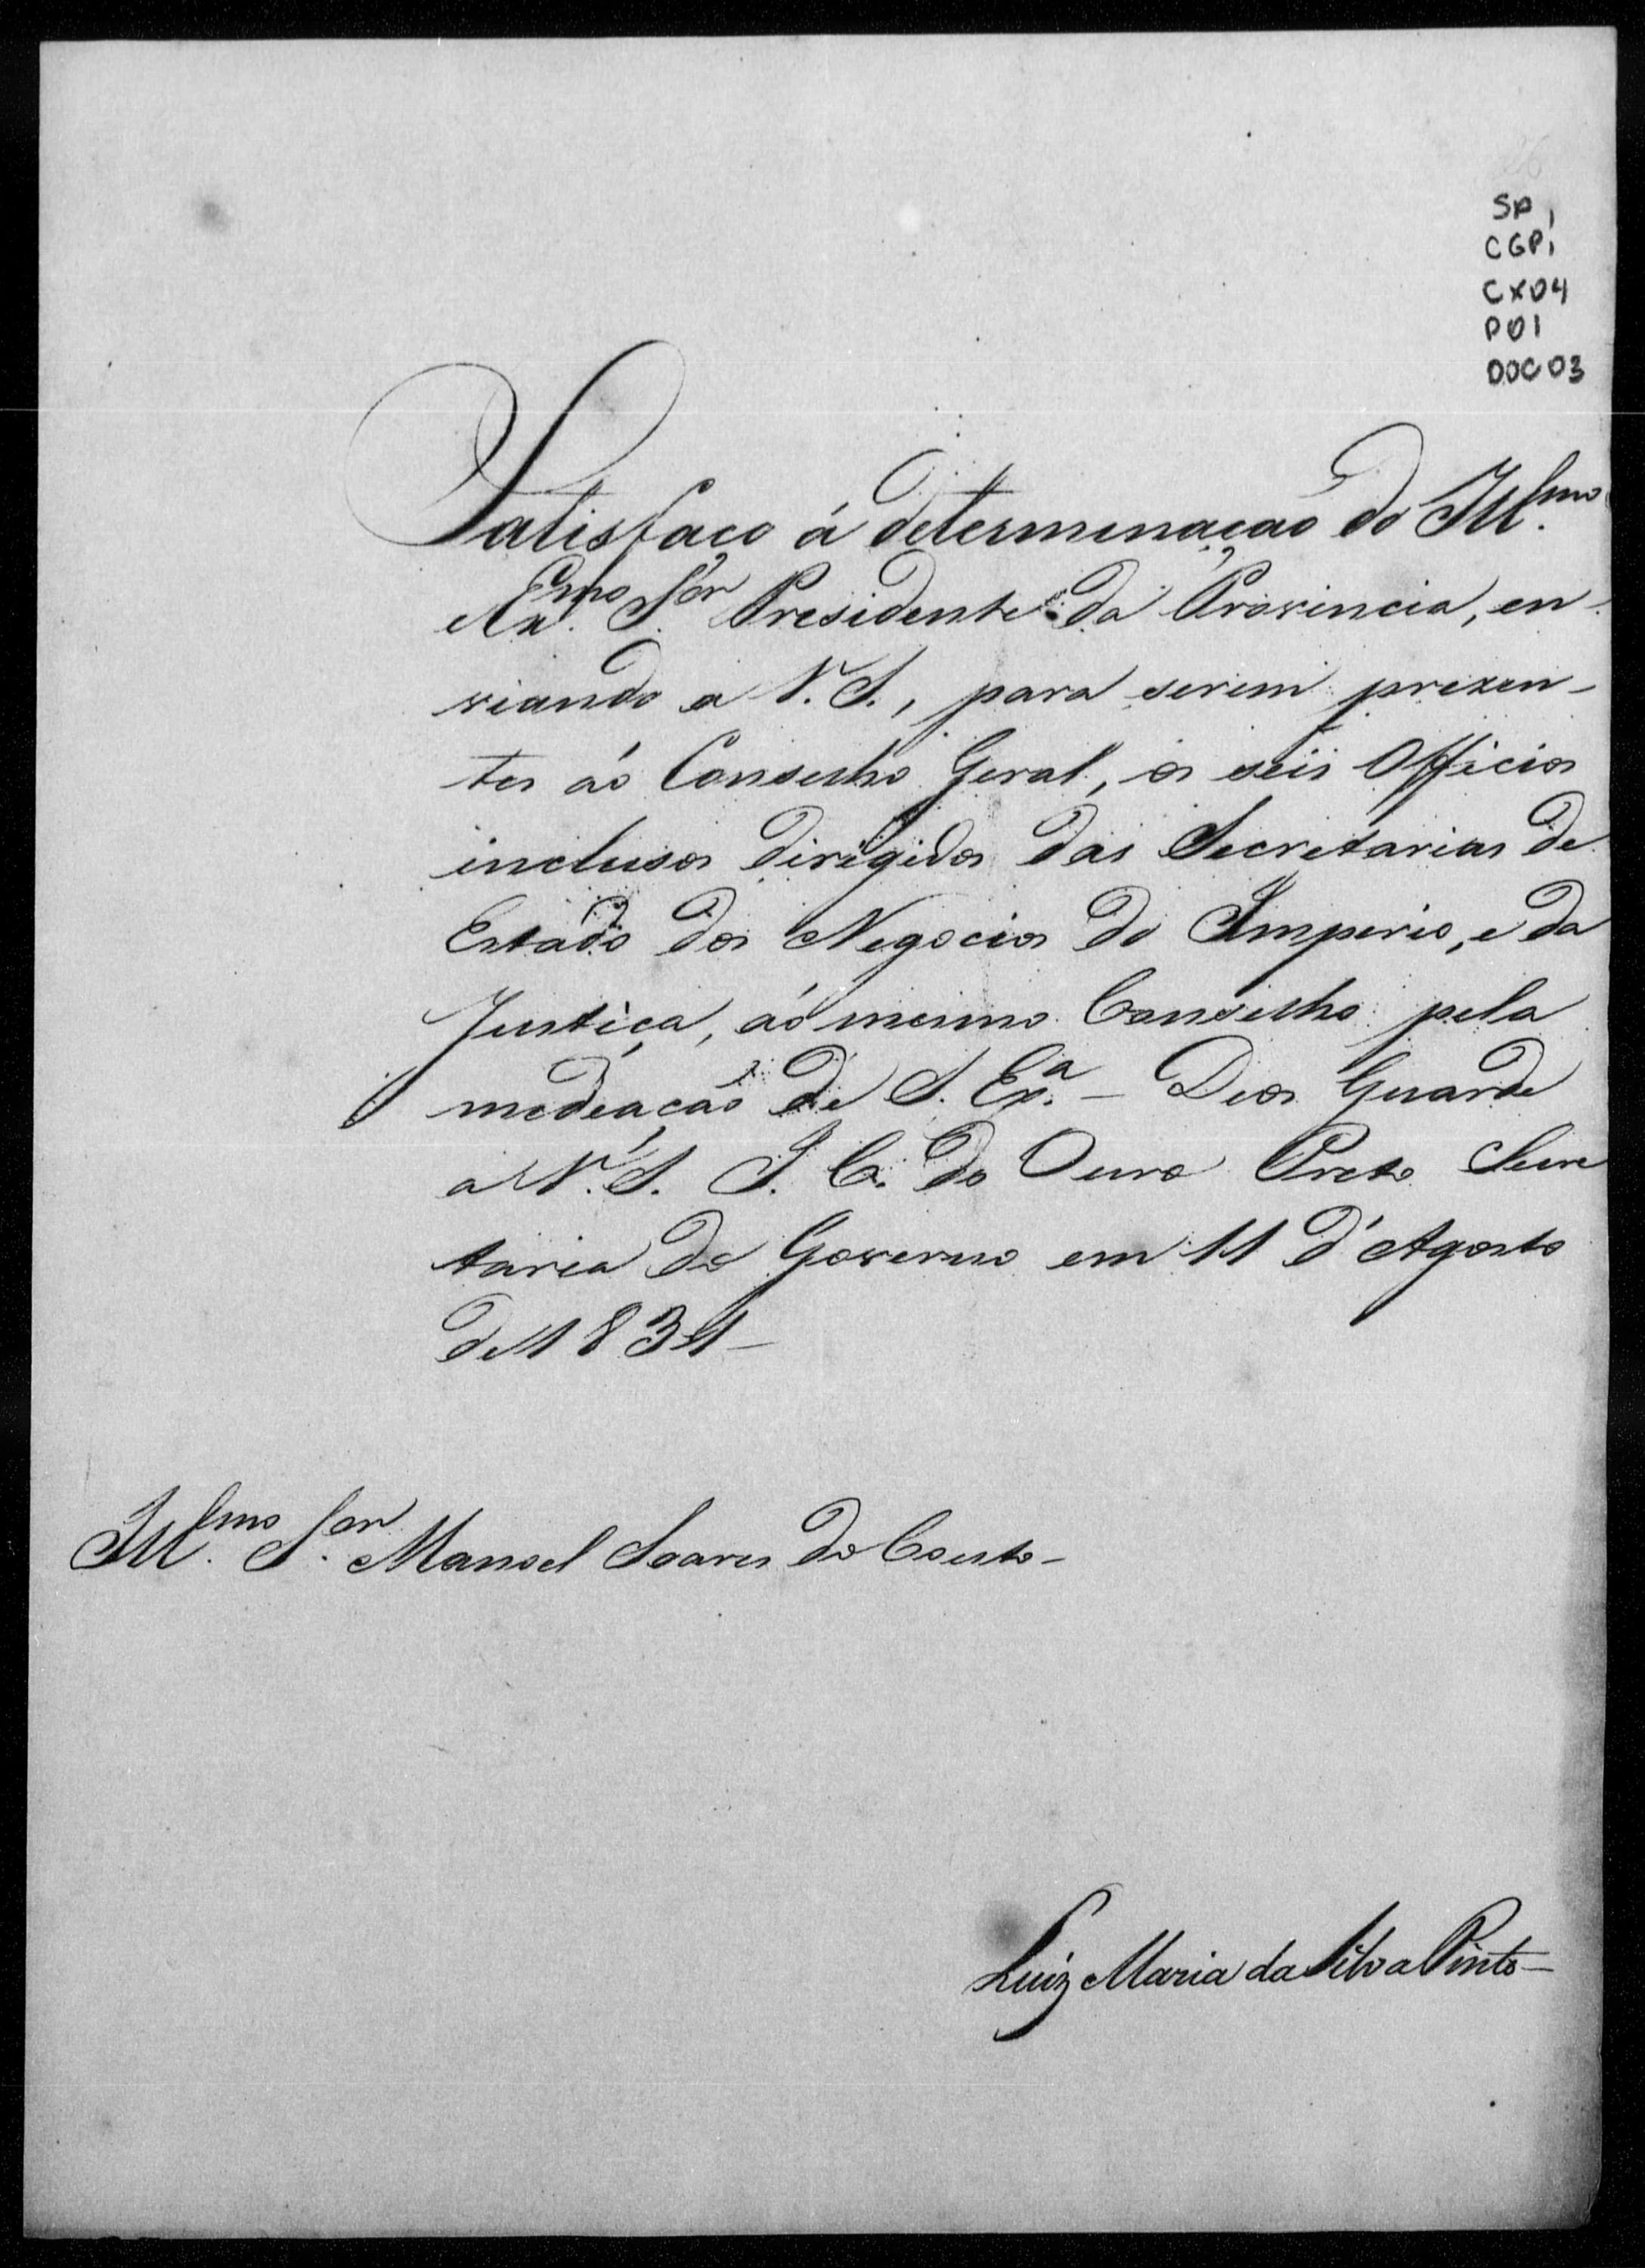 SP,
CGP,
CX04
P01
DOC03
Satisfaço á determinação do Ill.mo
e Ex.mo S.or Presidente da Provincia, en-
viando a V. S., para serem prezen-
tes ao Conselho Geral, os seis Officios
inclusos dirigidos das Secretarias de
Estado dos Negocios do Imperio, e da
Justiça, ao mesmo Conselho pela
mediação de S. Ex.a - Deos Guarde
a V. S. I. C. do Ouro Preto Secre
taria do Governo em 11 d'Agosto
de 1831-
Ill.mo S.or Manoel Soares do Couto-
Luiz Maria da Silva Pinto-